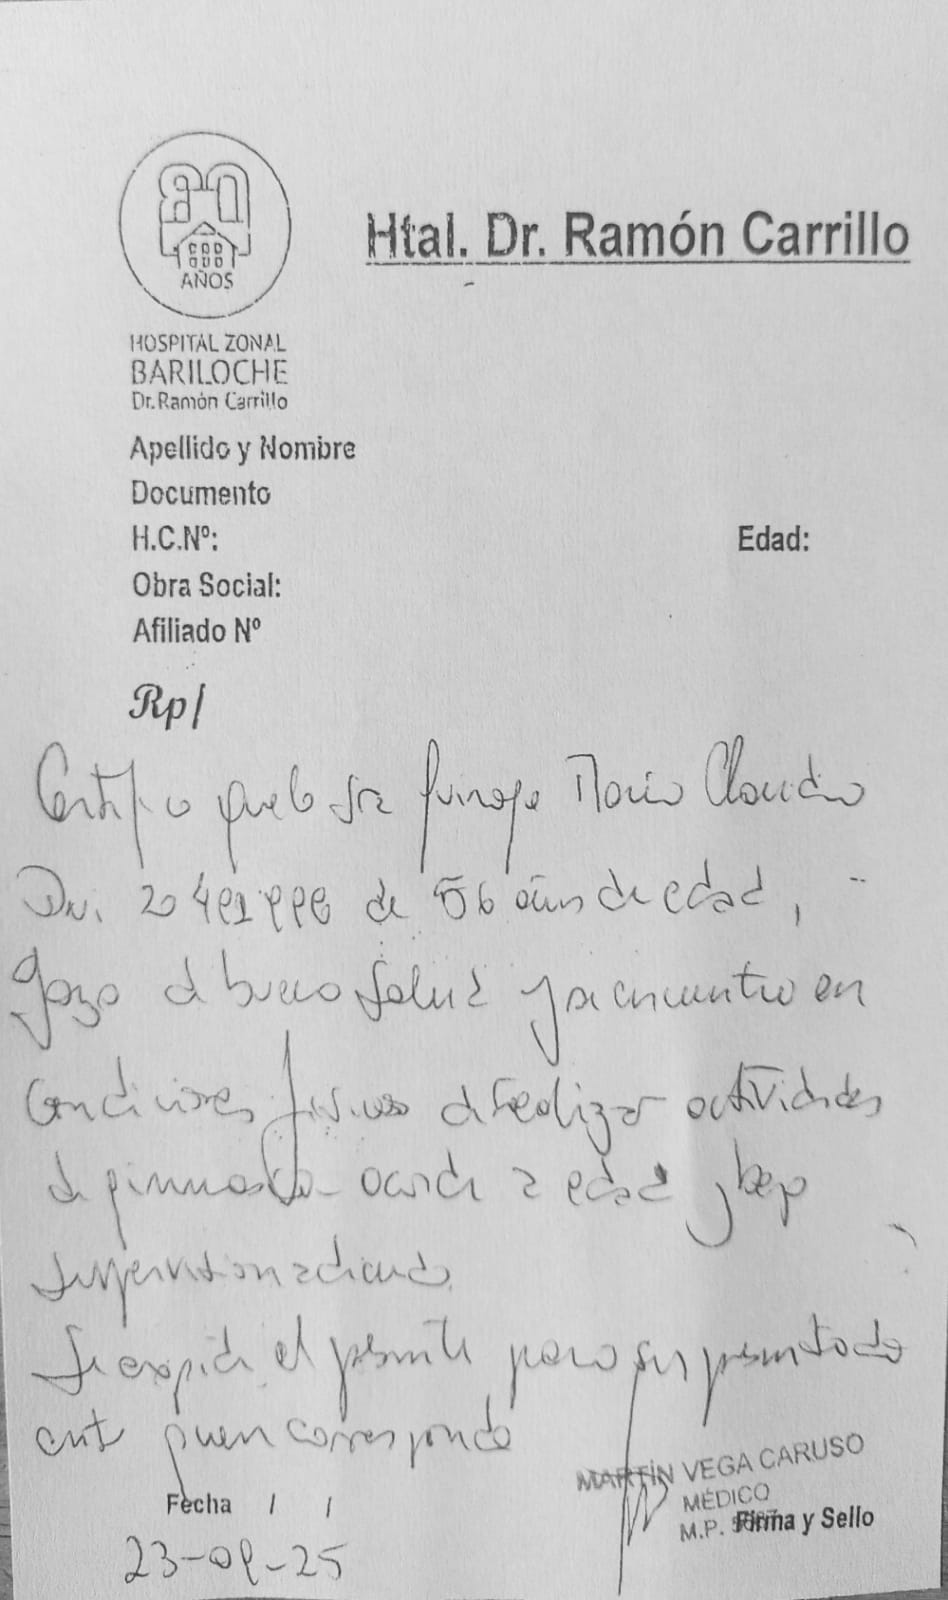 80
AÑOS
Htal. Dr. Ramón Carrillo
HOSPITAL ZONAL
BARILOCHE
Dr. Ramón Carrillo
Apellido y Nombre
Documento
H.C.Nº:
Edad:
Obra Social:
Afiliado Nº
Rp/
Certifico que la Sra María Claudia
Dni de 56 años de edad,
goza de buena salud y se encuentra en
condiciones físicas de realizar actividades
de gimnasia acorde a edad y bajo
supervision adecuada.
Se expide el presente para ser presentado
ante quien corresponda
MARTÍN VEGA CARUSO
MÉDICO
M.P.
Firma y Sello
Fecha / /
23-09-25